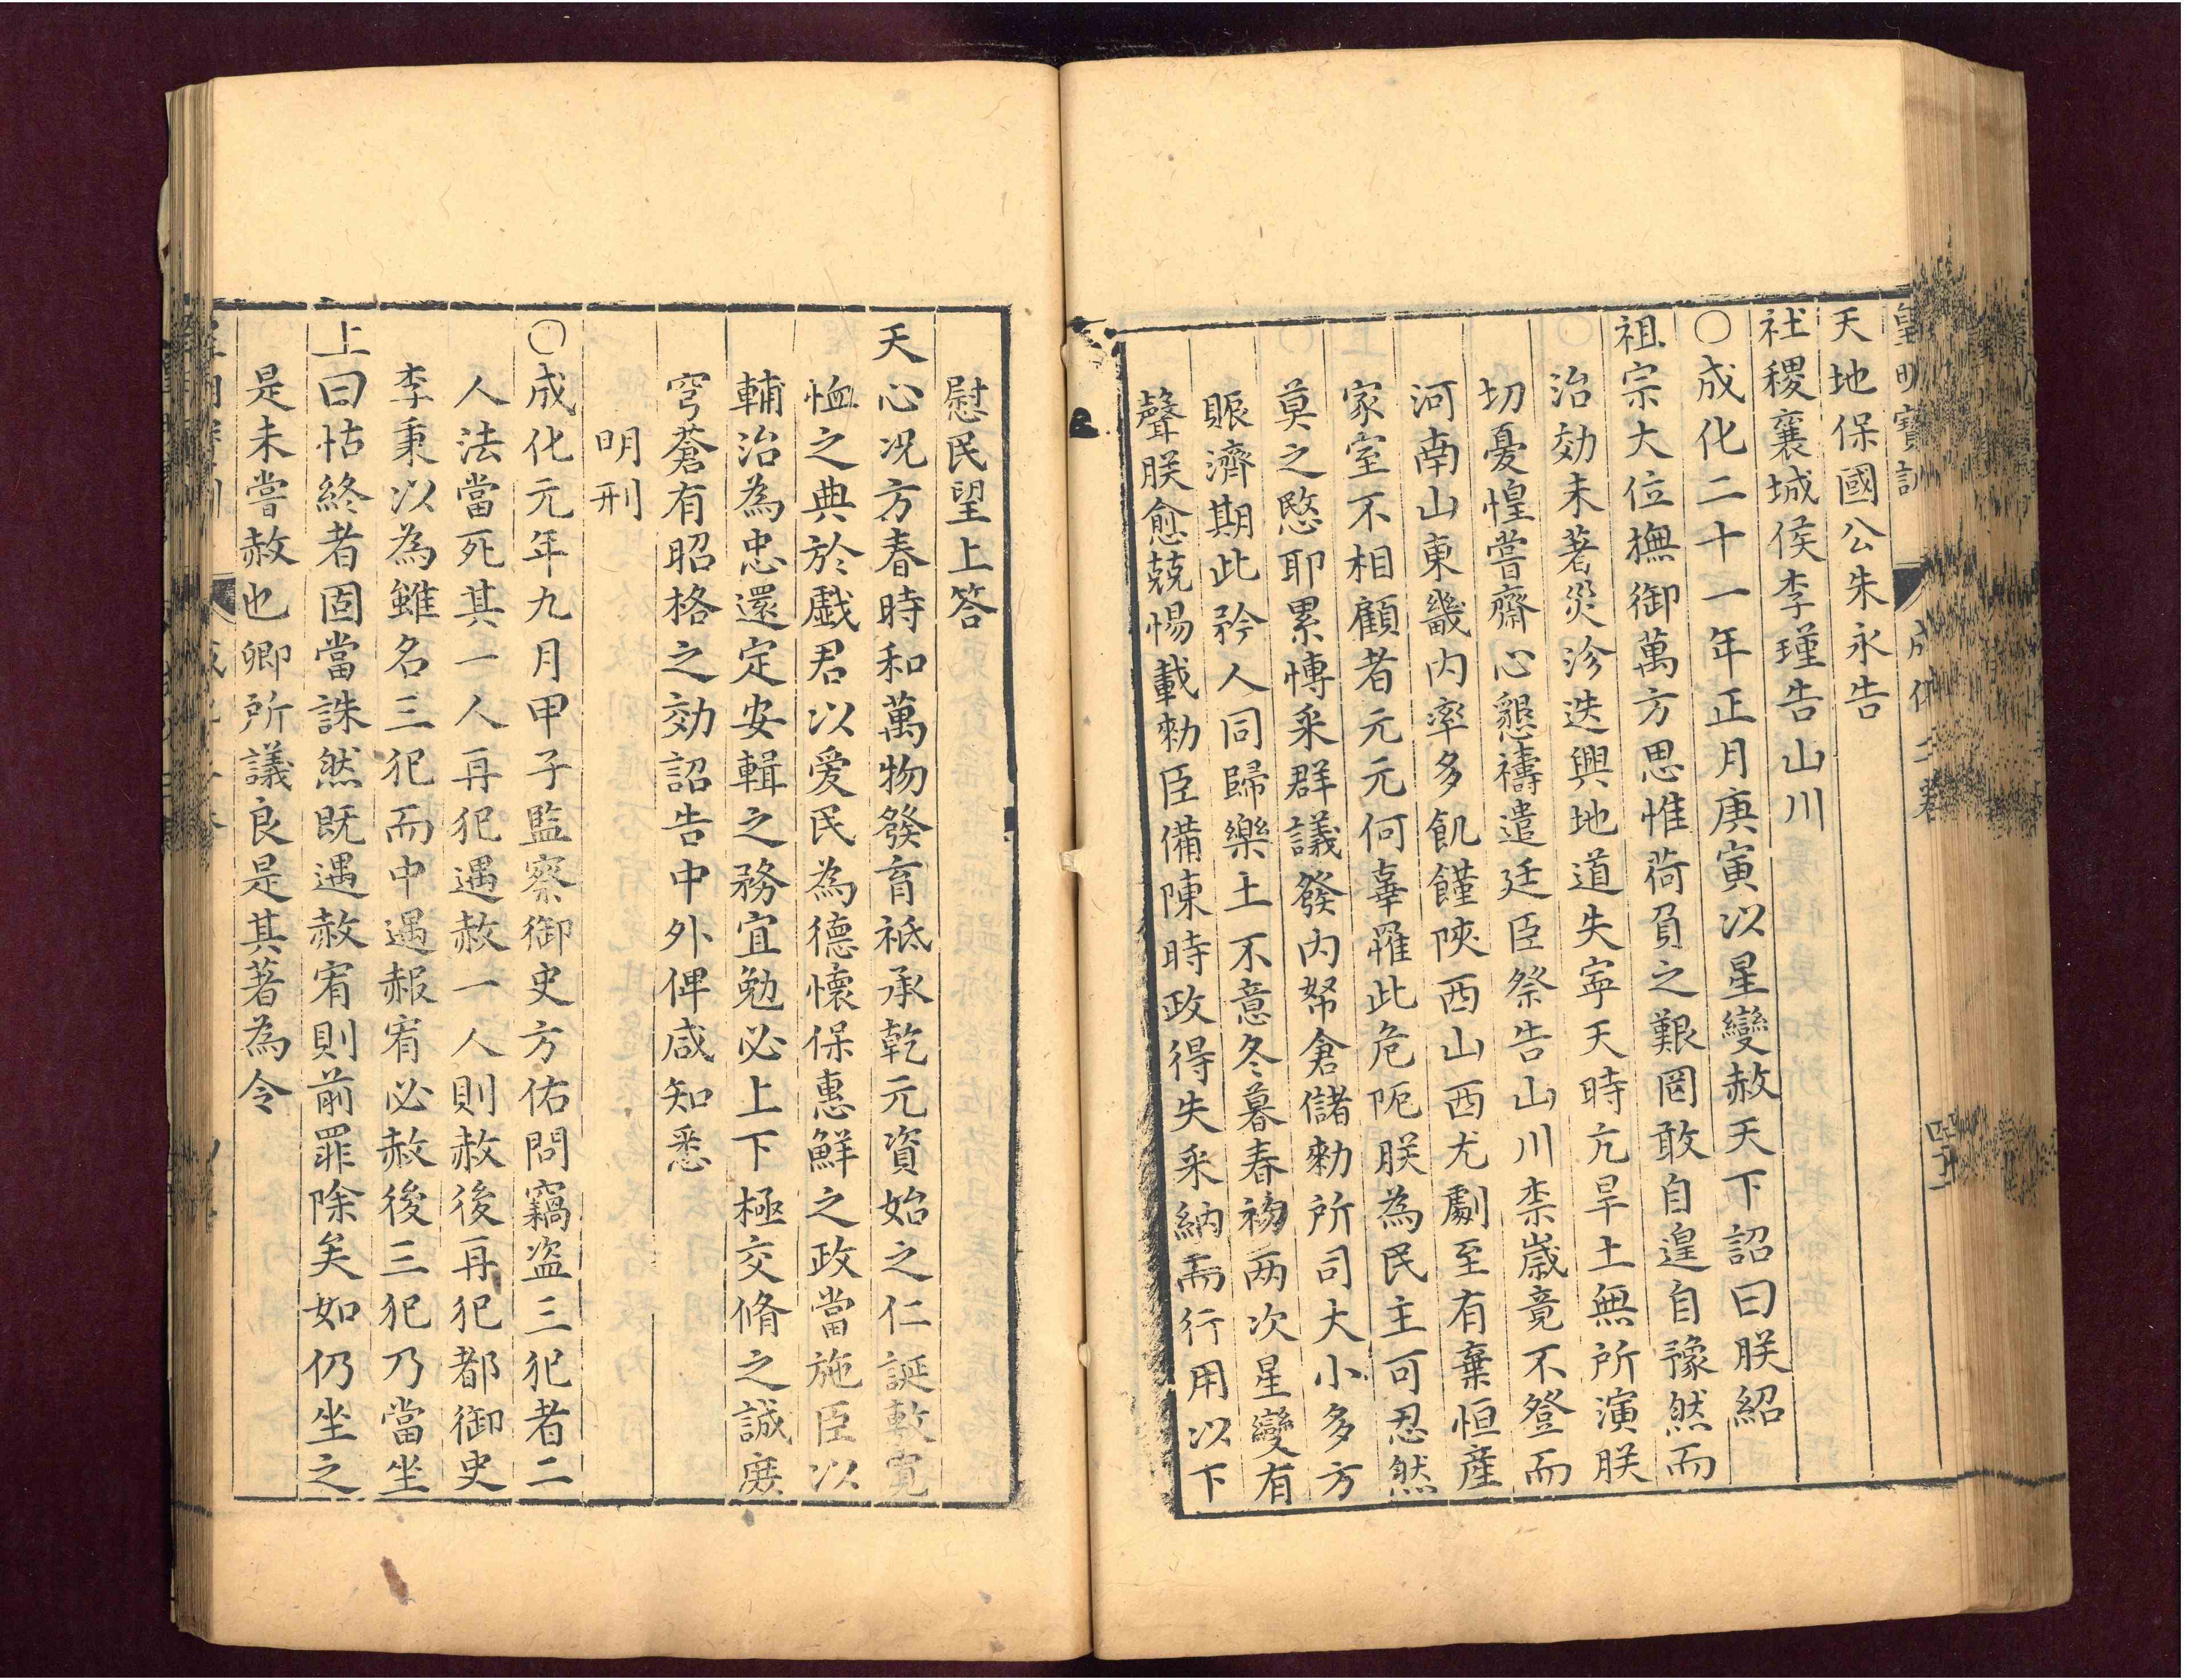 皇明寶訓 成化二卷
天地保國公朱永告
社稷襄城侯李瑾告山川
○成化二十一年正月庚寅以星變赦天下詔曰朕紹
祖宗大位撫御萬方思惟荷負之艱罔敢自遑自豫然而
治効未著災沴迭興地道失寧天時亢旱土無所演朕
切憂惶嘗齋心懇禱遣廷臣祭告山川柰歲竟不登而
河南山東畿內率多飢饉陝西山西尤劇至有棄恒産
家室不相顧者元元何辜罹此危阨朕為民主可忍然
莫之愍耶累慱采群議發內帑倉儲勑所司大小多方
賑濟期此矜人同歸樂土不意冬暮春初两次星變有
聲朕愈兢惕載勑臣備陳時政得失采納而行用以下
慰民望上答
天心况方春時和萬物發育祗承乾元資始之仁誕敷寬
恤之典於戲君以愛民為德懷保惠鮮之政當施臣以
輔治為忠還定安輯之務宜勉必上下極交脩之誠庻
穹蒼有昭格之効詔告中外俾咸知悉
明刑
○成化元年九月甲子監察御史方佑問竊盗三犯者二
人法當死其一人再犯遇赦一人則赦後再犯都御史
李秉以為雖名三犯而中遇赧宥必赦後三犯乃當坐
上曰怙終者固當誅然既遇赦宥則前罪除矣如仍坐之
是未嘗赦也卿所議良是其著為令